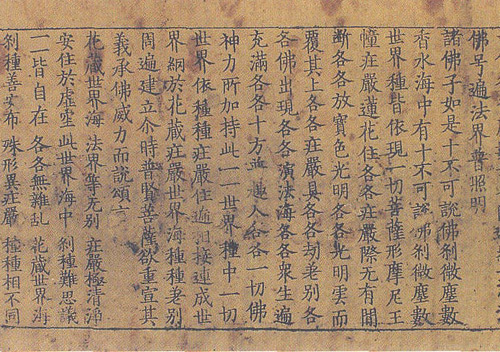 佛号遍法界普照明
諸佛子如是十不可說佛刹微塵數
香水海中有十不可說佛刹微塵數
世界種皆依現一切菩薩形摩尼王
幢莊嚴蓮花住各各莊嚴際无有間
斷各各放寶色光明各各光明雲而
覆其上各各莊嚴具各各劫差别各
各佛出現各各演法海各各衆生遍
充滿各各十方普趣入各各一切佛
神力所加持此一一世界種中一切
世界依種種莊嚴住遞相接連成世
界網於花藏莊嚴世界海種種差别
周遍建立尒時普賢菩薩欲重宣其
義承佛威力而說頌言
花藏世界海 法界等无别 莊嚴極清淨
安住於虛空 此世界海中 刹種難思議
一一皆自在 各各無雜亂 花藏世界海
刹種善安布 殊形異莊嚴 種種相不同